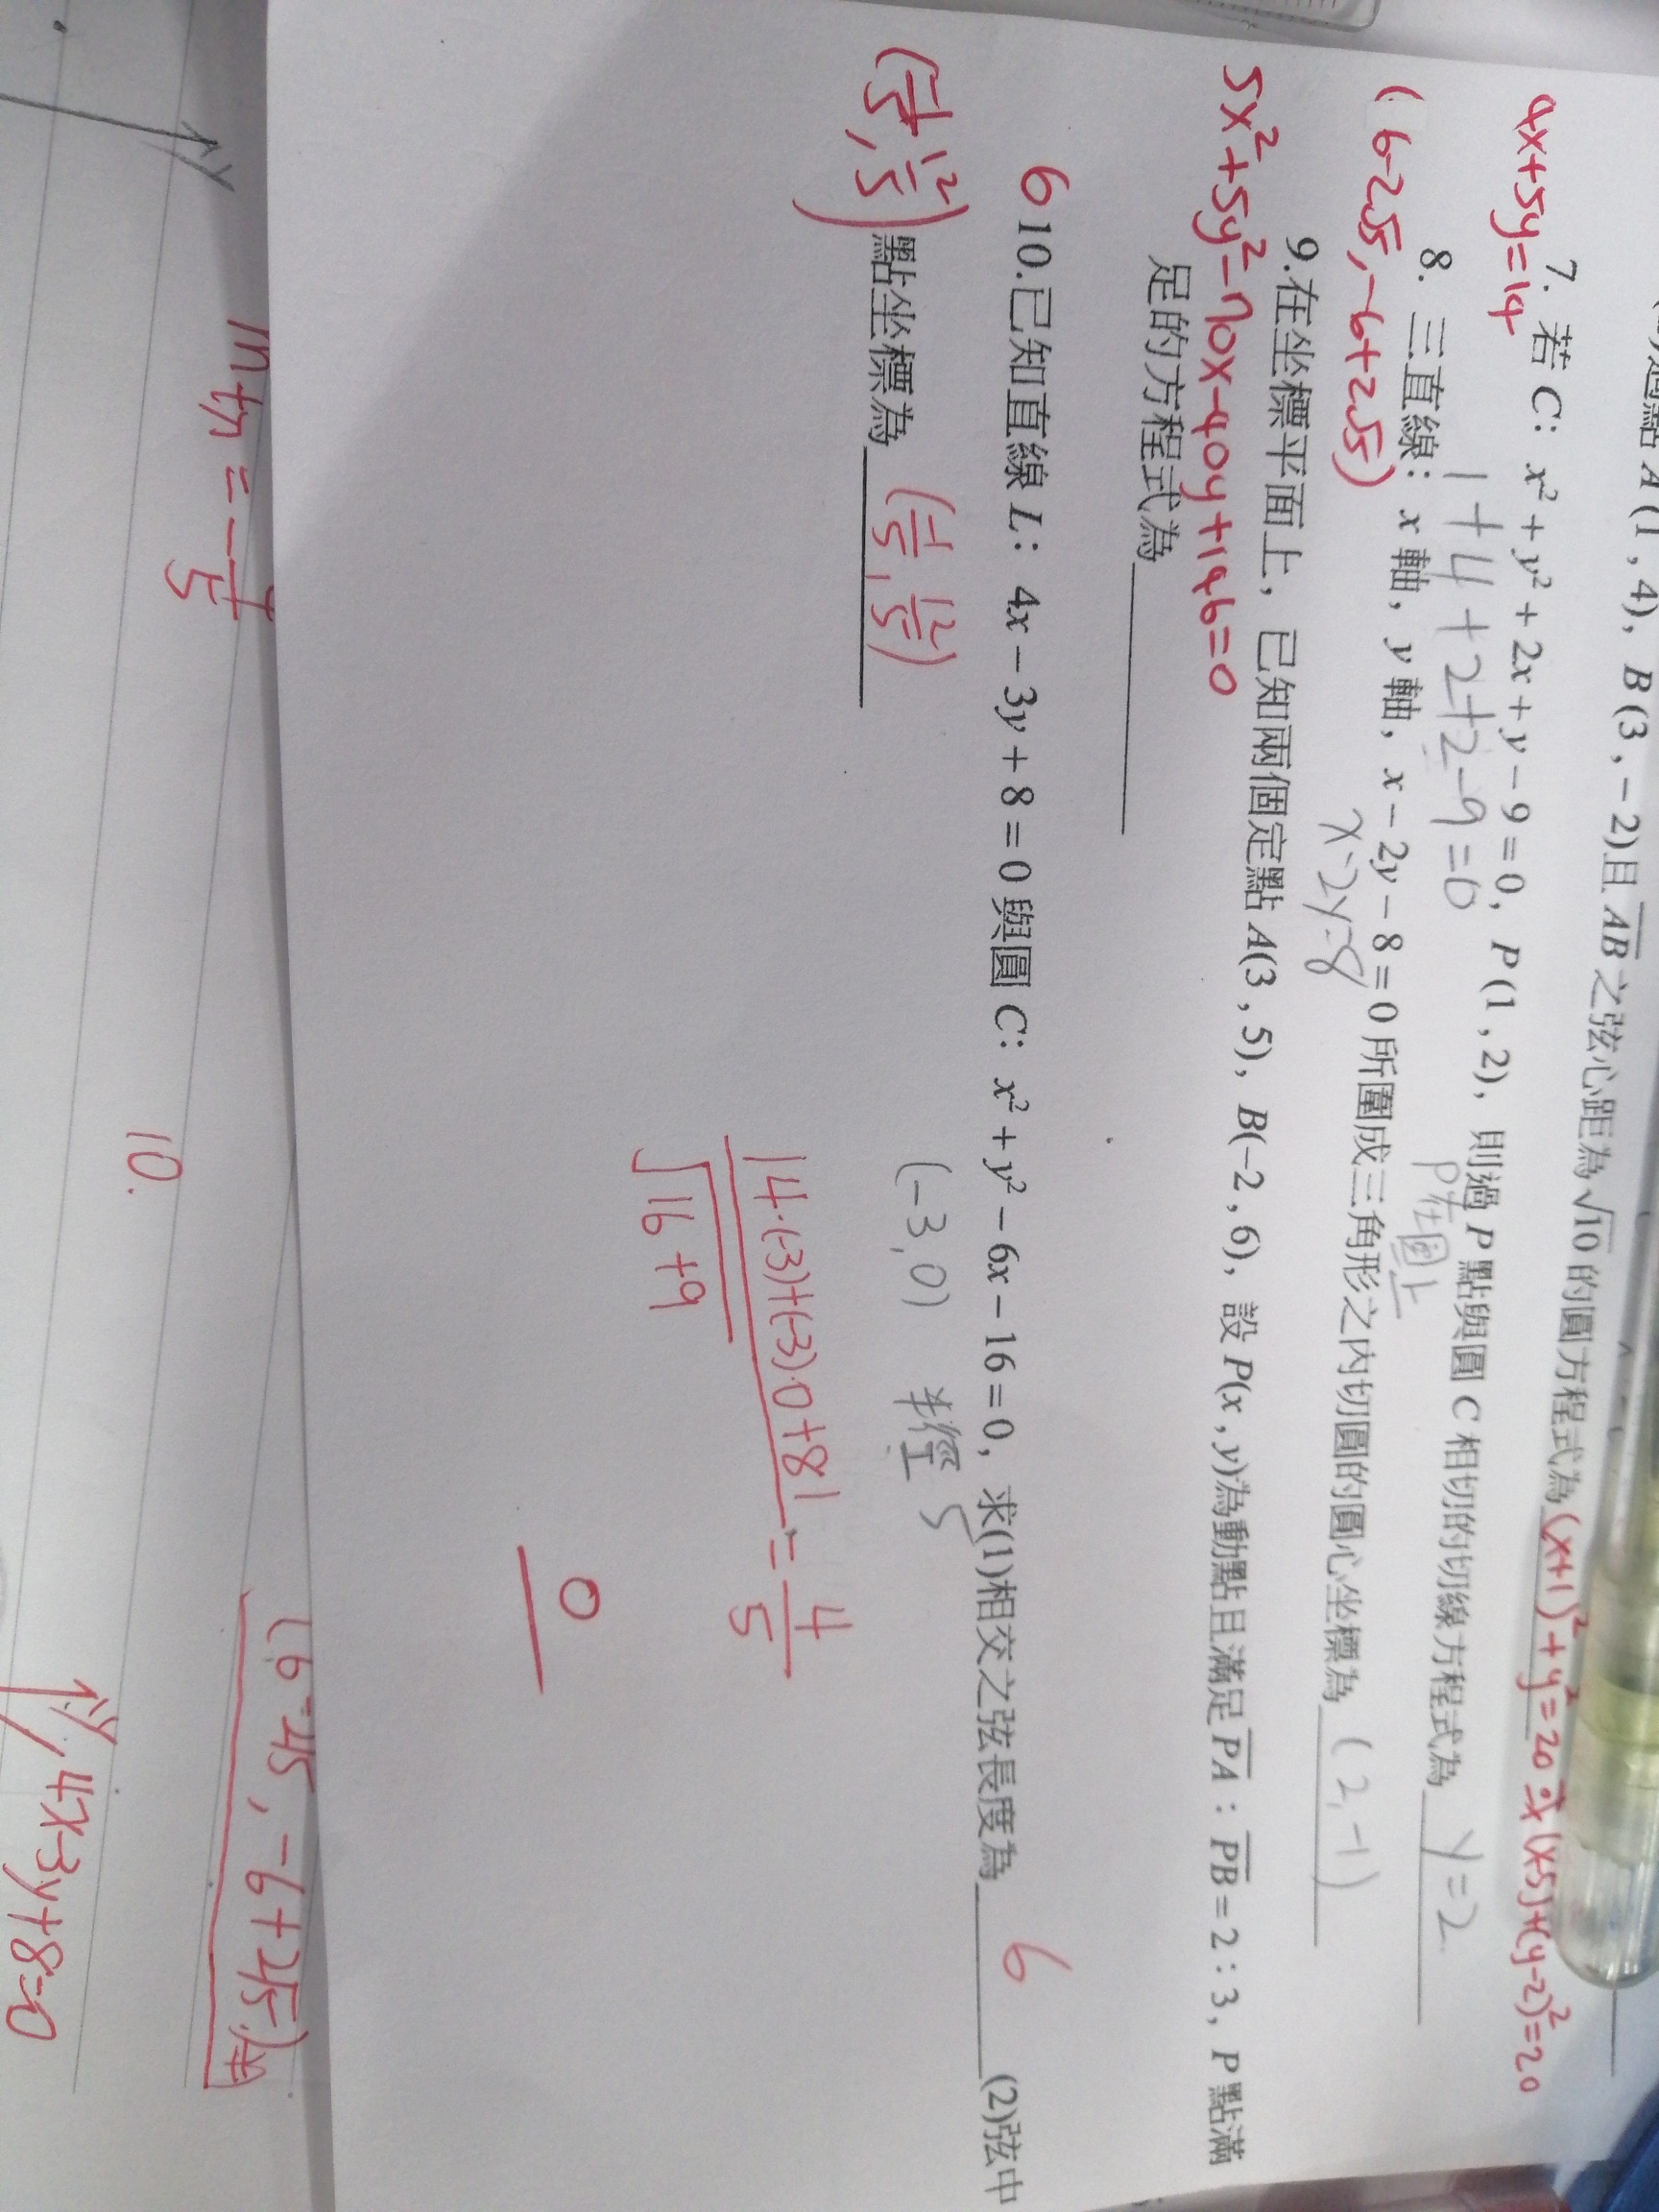 過點 A(1 , 4)，B(3 , −2)且 AB 之弦心距為 √10 的圓方程式為 (x+1)²+y²=20 或 (x-5)+(y-2)²=20
4x+5y=14
7. 若 C：x² + y² + 2x + y − 9 = 0，P(1 , 2)，則過 P 點與圓 C 相切的切線方程式為 y=2
1+4+2+2-9=0
P在圓上
(6-2√5, -6+2√5)
8. 三直線：x 軸，y 軸，x − 2y − 8 = 0 所圍成三角形之內切圓的圓心坐標為 (2,-1)
x-2y-8
9.在坐標平面上，已知兩個定點 A(3 , 5)，B(−2 , 6)，設 P(x , y)為動點且滿足 PA : PB = 2 : 3，P 點滿
5x²+5y²-70x-40y+146=0
足的方程式為
6
10.已知直線 L：4x − 3y + 8 = 0 與圓 C：x² + y² − 6x − 16 = 0，求(1)相交之弦長度為 6 (2)弦中
(-3,0) 半徑 5
(1/5, 12/5)
點坐標為 (1/5, 12/5)
|4·(-3)+(-3)·0+8| / √16+9 = 4/5
0
(6-2√5, -6+2√5)#
y
m切=-4/5
10.
y
4x-3y+8=0